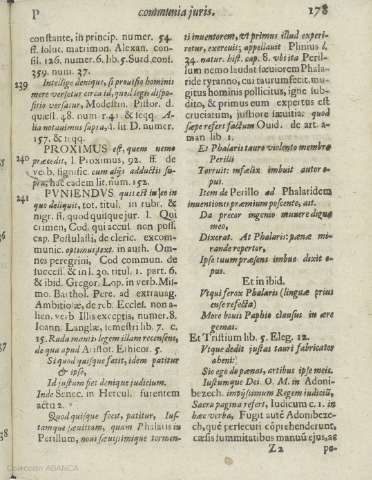 P communia juris. 178
constante, in princip. numer. 54.
ff. solut. matrimon. Alexan. con-
sil. 126. numer. 6. lib. 5. Surd. conf.
359. num. 37.
239 Intellige denique, si provisio hominis
mere versetur circa id, quod legis dispo-
sitio versatur, Modestin. Pistor. d.
quæst. 48. num 141. & seqq. A-
lia notavimus supra, d. lit D. numer.
157. & seqq.
PROXIMUS est, quem nemo
240 præcedit, l. Proximus, 92. ff. de
verb. signific. cum aliis adductis su-
pra, hac eadem lit. num. 152.
PUNIENDUS quis est in eo in
241 quo deliquit, tot. titul. in rubr. &
nigr. ff. quod quisque jur. l. Qui
crimen, Cod. qui accus. non poss.
cap. Postulasti, de cleric. excom-
munic. optimus text. in auth. Om-
nes peregrini, Cod commun. de
success. & in l. 20. titul. 1. part. 6.
& ibid. Gregor. Lop. in verb. Mis-
mo. Barthol. Pere. ad extravag.
Ambitiosæ, de reb. Eccles. non a-
lien. verb Illis exceptis, numer. 8.
Ioann. Langlæ, semestri lib. 7. c.
15. Radamanti legem illam recensens,
de qua apud Aristot. Ethicor. 5.
Si quod quisque facit, idem patitur
& ipse,
Id justum fiet denique judicium.
Inde Senec. in Hercul. furentem
actu 2.
Quod quisque fecit, patitur, Jus-
tamque sævitiam, quam Phalaris in
Perillum, novi sævissimique tormen-
ti inventorem, ut primus illud experi-
retur, exercuit; appellavit Plinius l.
34. natur. hist. cap. 8. ubi ita Peril-
lum nemo laudat sæviorem Phala-
ride tyranno, cui taurum fecit, mu-
gitus hominis pollicitus, igne sub-
dito, & primus eum expertus est
cruciatum, justiore sævitia: quod
sæpe refert factum Ouid. de art. a-
man lib. 1.
Et Phalaris tauro violento membra
Perilli
Torruit: infælix imbuit autor o-
pus.
Item de Perillo ad Phalaridem
inventionis præmium poscente, ait.
Da precor ingenio munere digna
meo,
Dixerat. At Phalaris: pœnæ mi-
rande repertor,
Ipse tuum præsens imbue dixit o-
pus.
Et in ibid.
Utque ferox Phalaris (linguæ prius
ense resecta)
More bovis Paphio clausus in ære
gemat.
Et Tristium lib. 5. Eleg. 12.
Utque dedit justas tauri fabricator
aheni!
Sic ego do pœnas, artibus ipse meis.
Iustumque Dei. O. M. in Adoni-
bezech. impiissimum Regem judicium,
Sacra pagina refert, Iudicum c. 1. in
hæc verba, Fugit autē Adonibeze-
ch, quē persecuti cōprehenderunt,
cæsis summitatibus manuū ejus, ac
Z2 pe-
Colección ABANCA